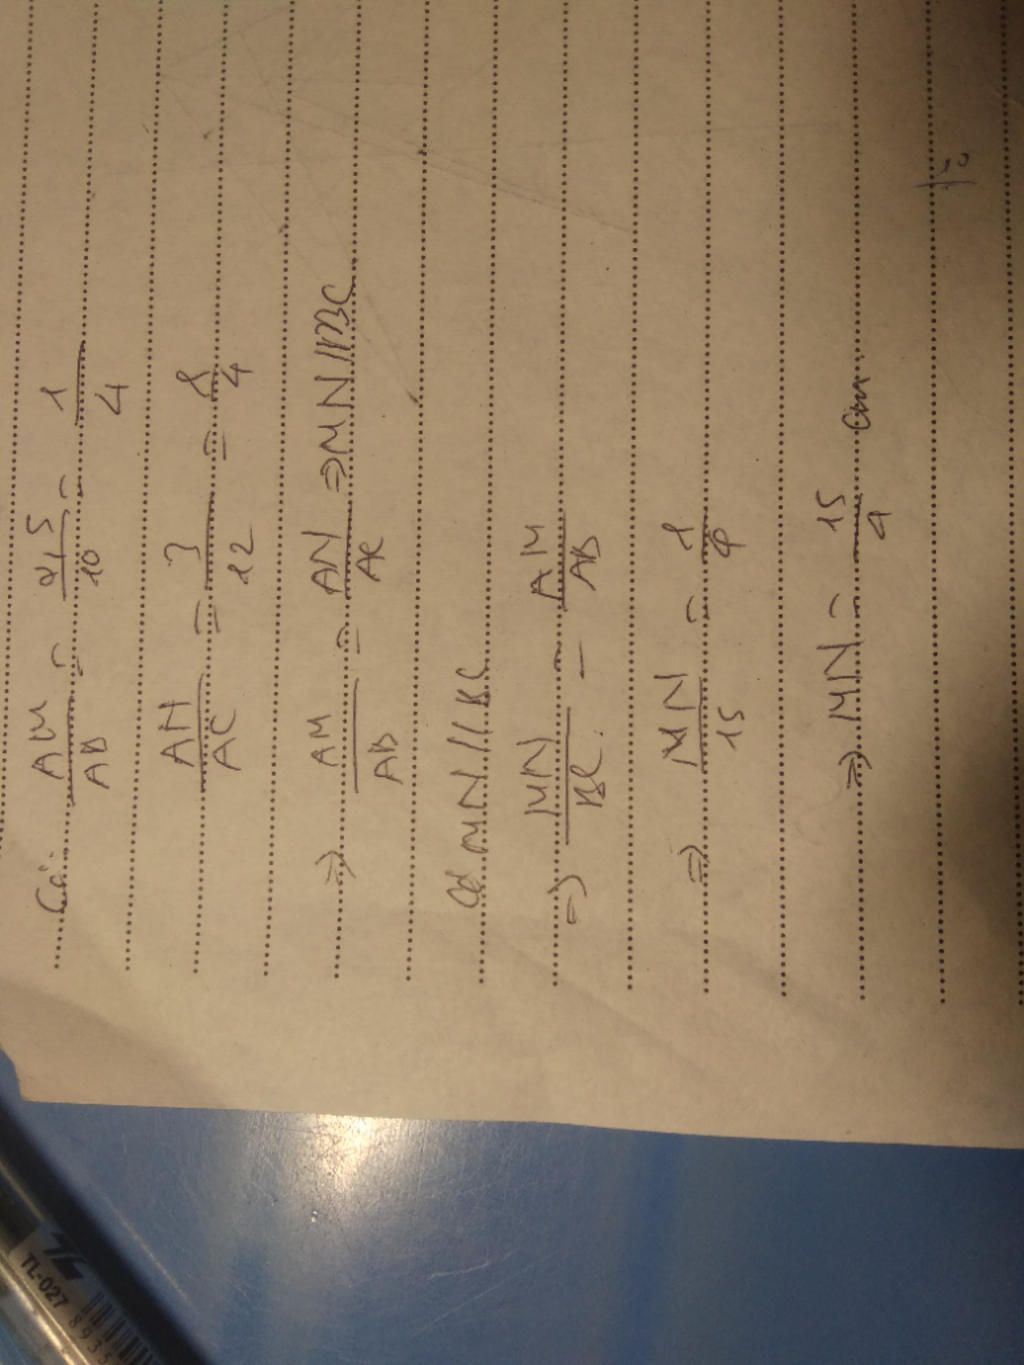 Có: AM/AB = 2,5/10 = 1/4
AN/AC = 3/12 = 1/4
=> AM/AB = AN/AC => MN//BC
Có MN//BC
=> MN/BC = AM/AB
=> MN/15 = 1/4
=> MN = 15/4 cm
TL-027
8935